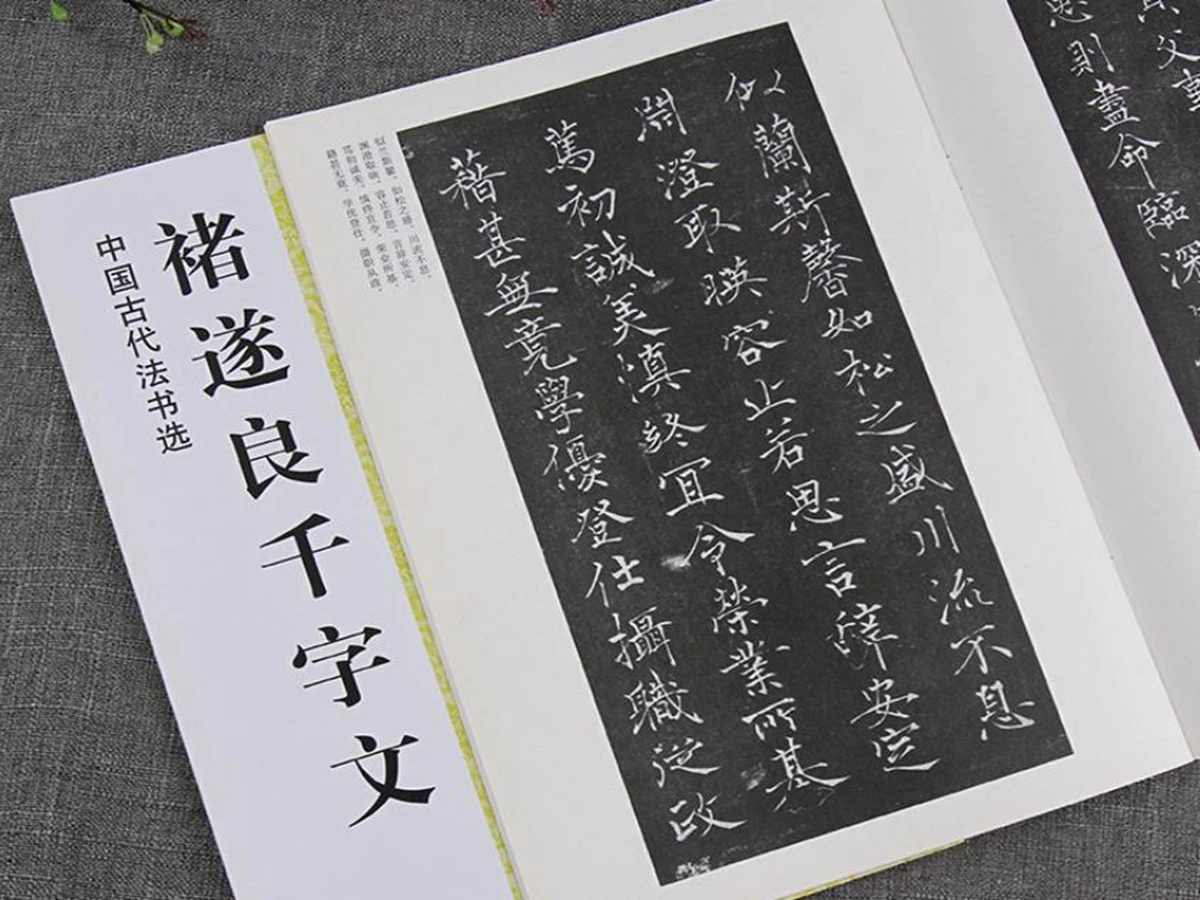 褚遂良千字文
中国古代法书选
似兰斯馨，如松之盛。川流不息，
渊澄取映。容止若思，言辞安定。
笃初诚美，慎终宜令。荣业所基，
籍甚无竟。学优登仕，摄职从政。
似蘭斯馨如松之盛川流不息
澄取暎容止若思言辭安定
篤初誠美慎終宜令榮業所基
藉甚無竟學優登仕攝職從政
父事
忠則盡命臨深